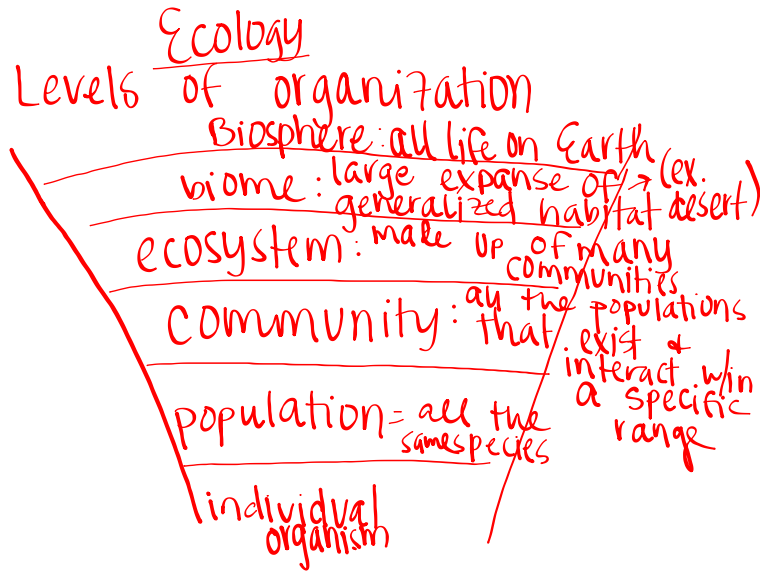 Ecology
Levels of organization
Biosphere: all life on Earth
biome: large expanse of → (ex.
generalized habitat desert)
ecosystem: made up of many
communities
community: all the populations
that exist &
interact w/in
a specific
range
population = all the
same species
individual
organism